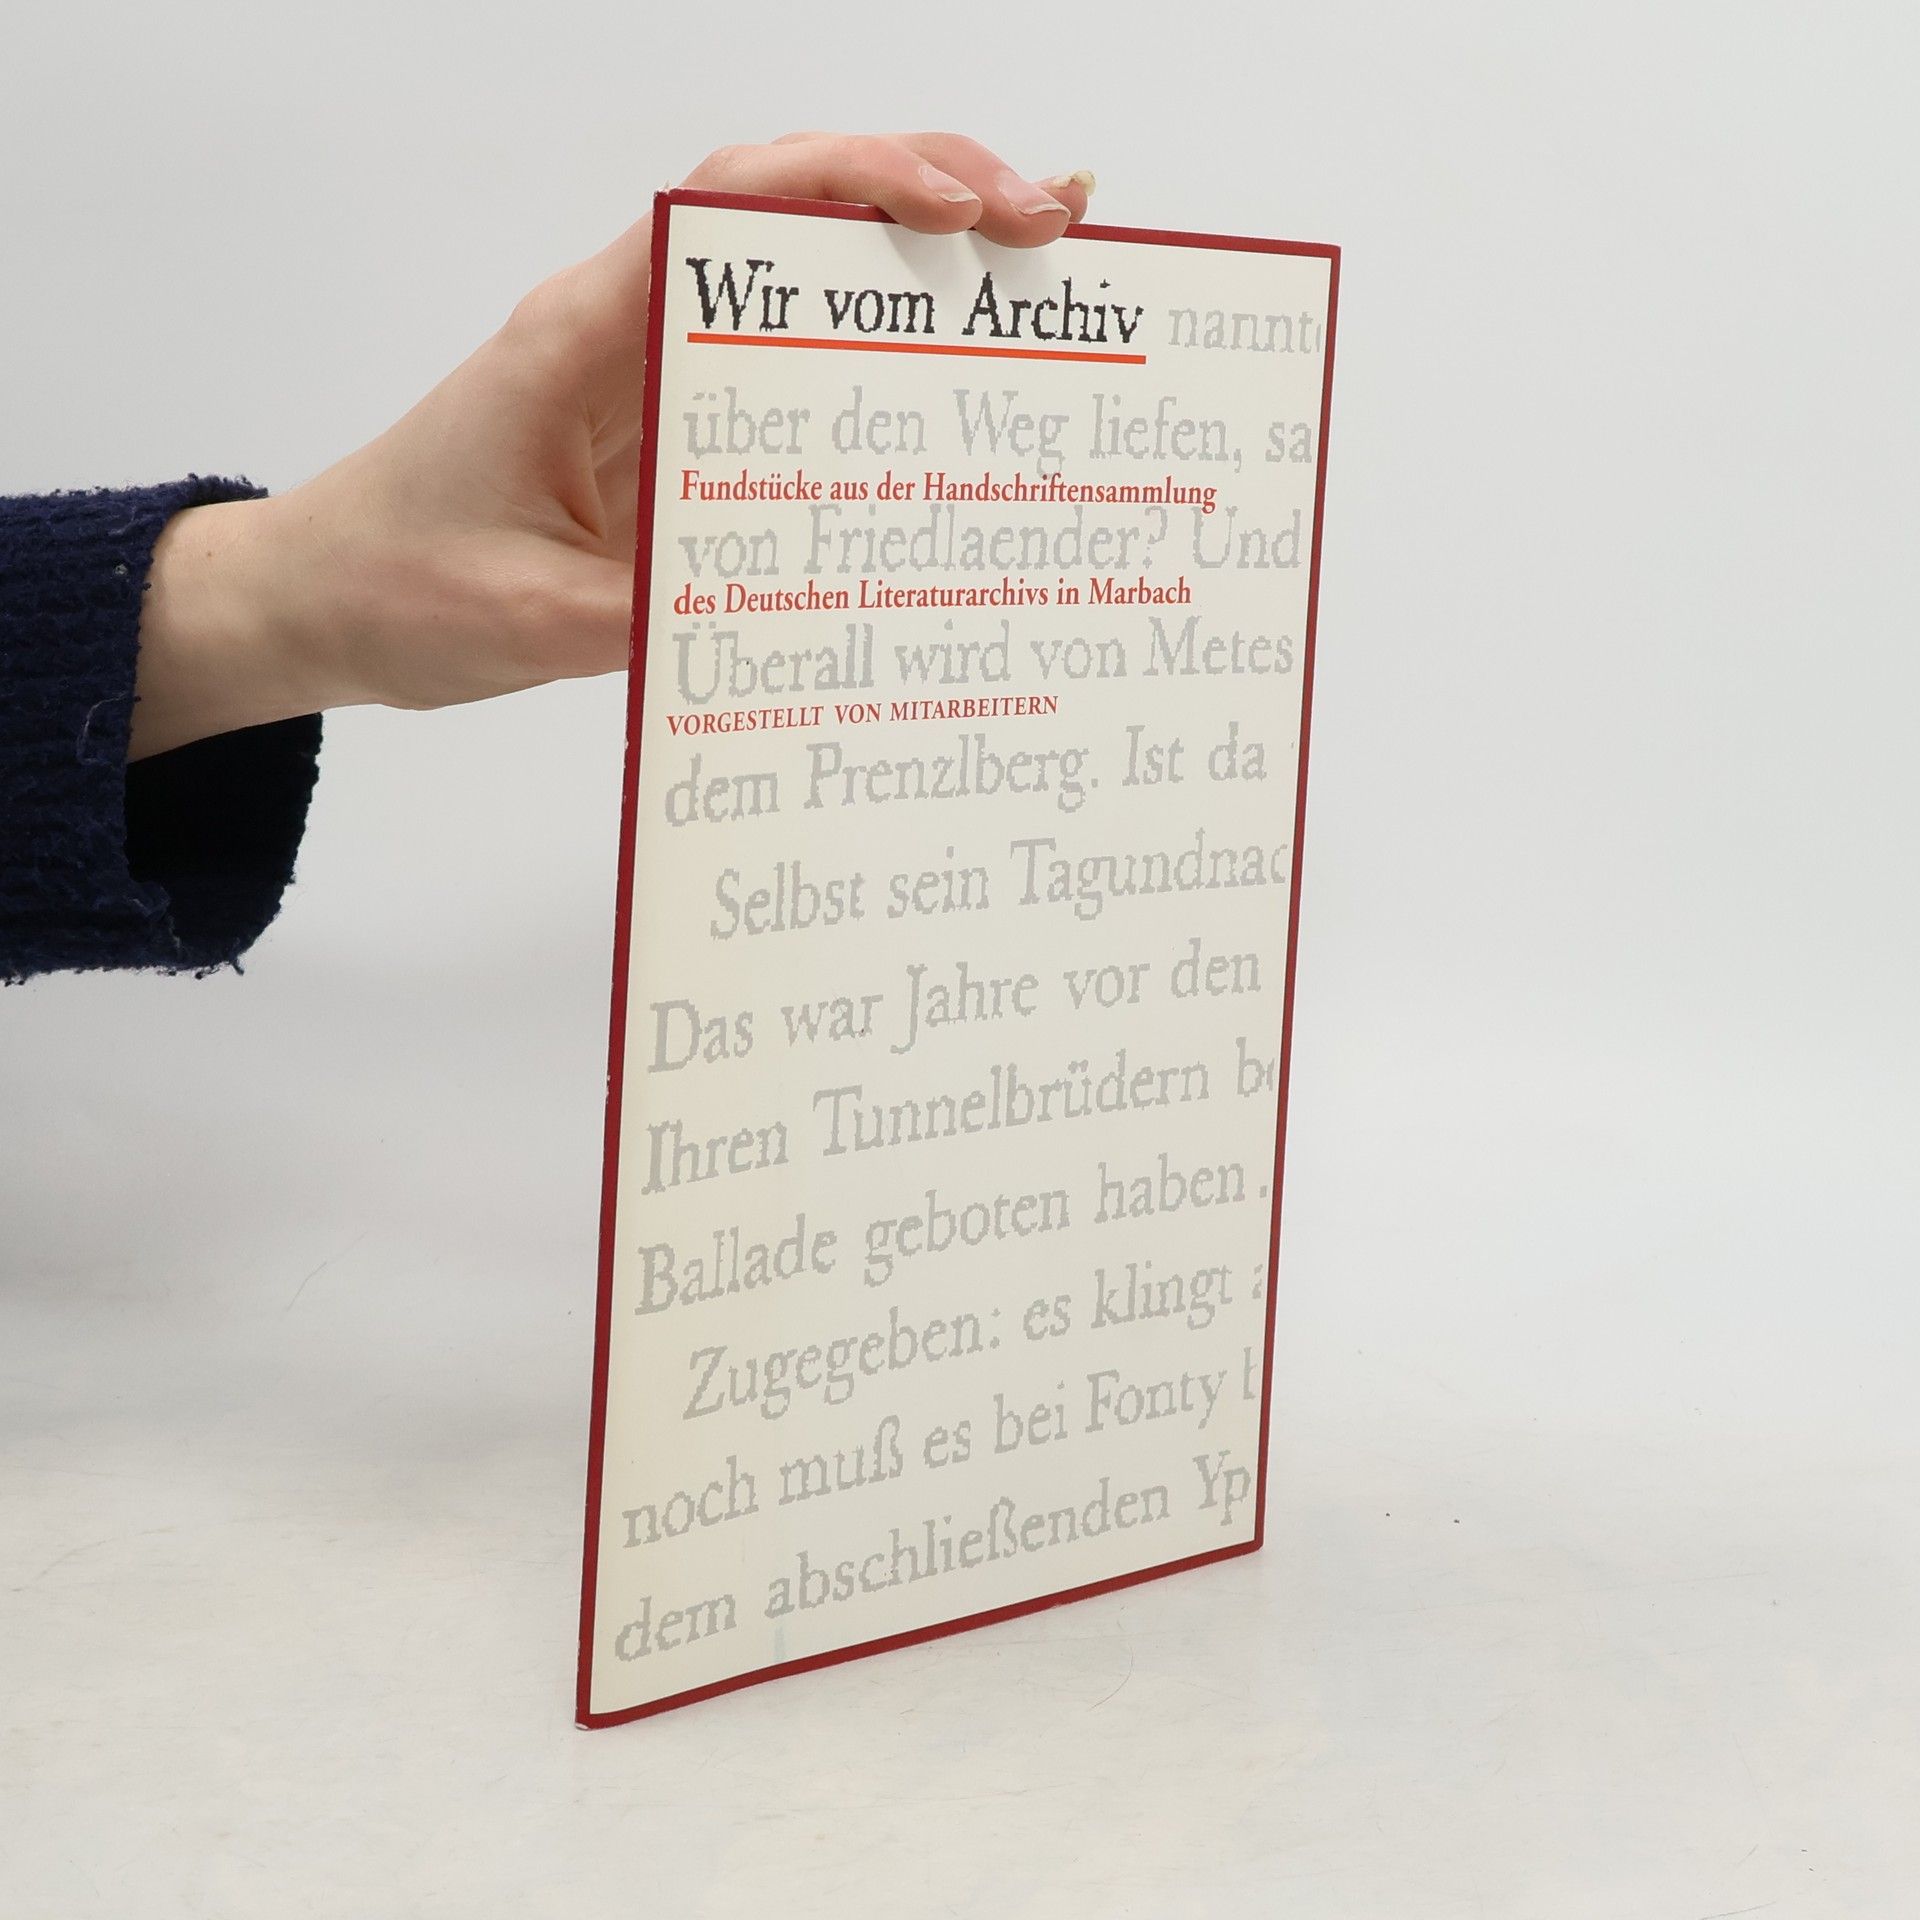 Wir vom Archiv
über den Weg liefen,
Fundstücke aus der Handschriftensammlung
von Friedlaender? Und
des Deutschen Literaturarchivs in Marbach
Überall wird von Metes
VORGESTELLT VON MITARBEITERN
dem Prenzlberg. Ist da
Selbst sein Tagundnac
Das war Jahre vor den
Ihren Tunnelbrüdern
Ballade geboten haben.
Zugegeben: es klingt
noch muß es bei Fonty
dem abschließenden Yp